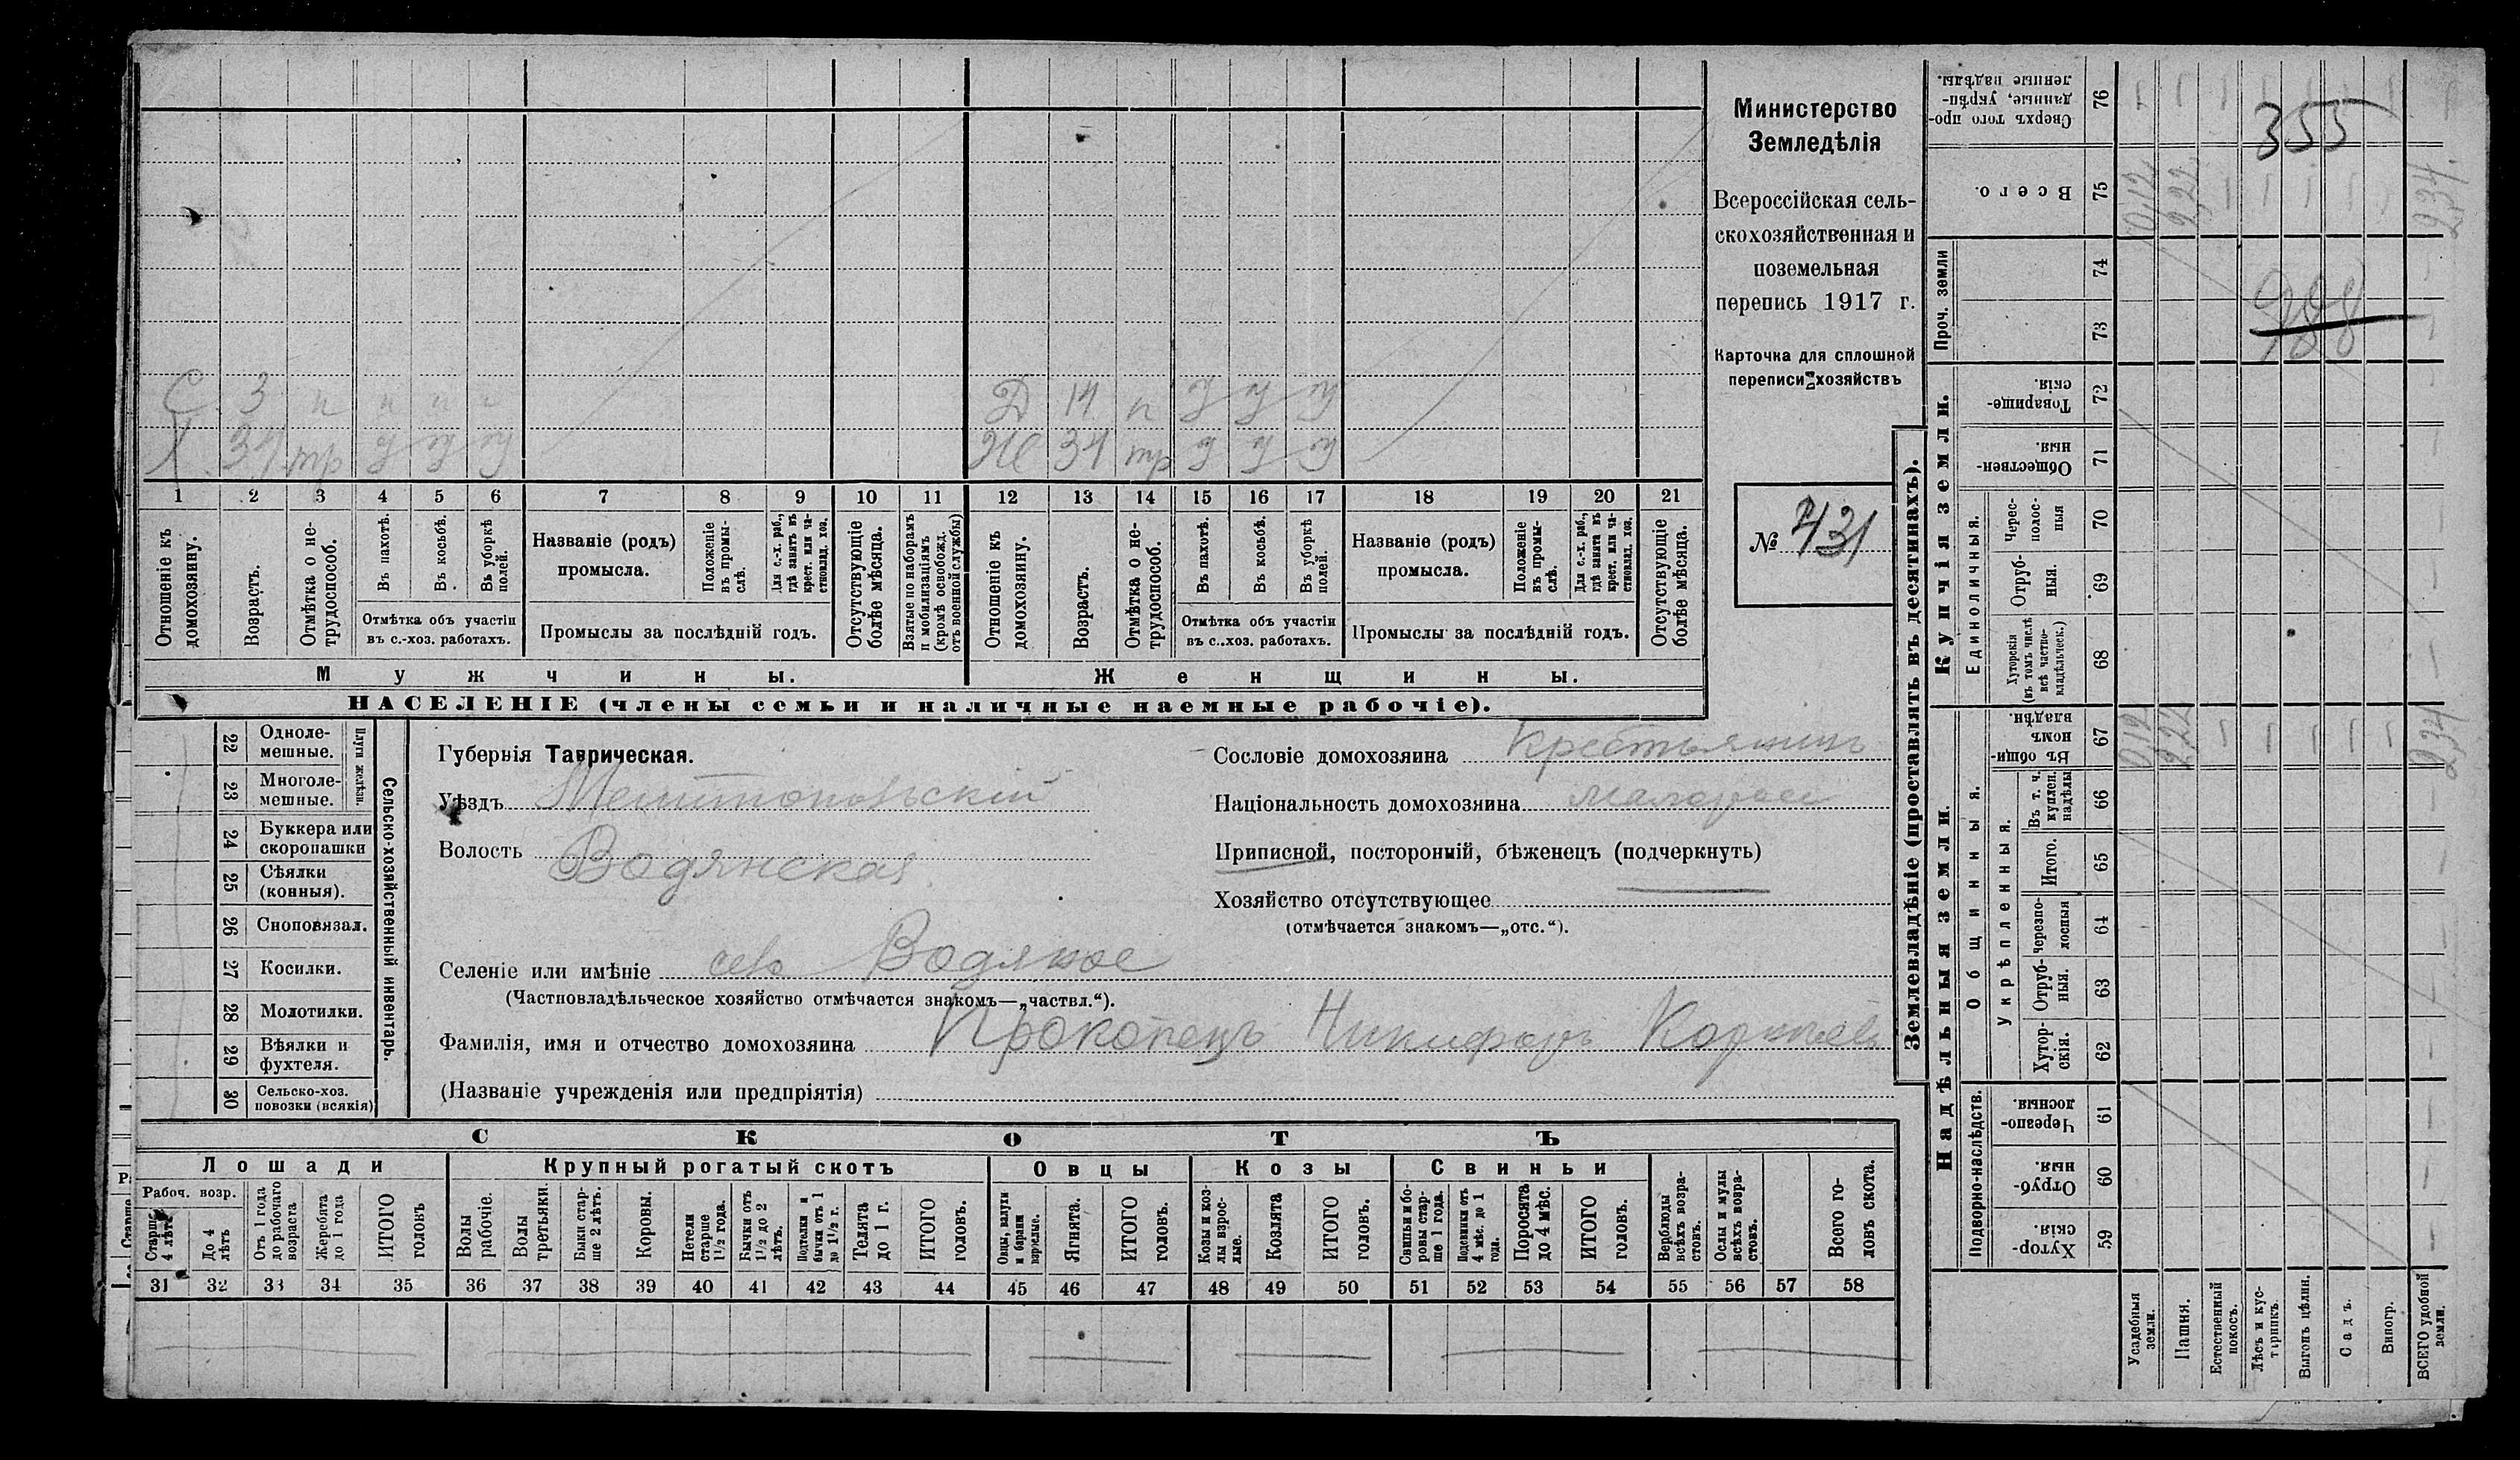 Министерство
Земледѣлія
Всероссійская сель-
скохозяйственная и
поземельная
перепись 1917 г.
Карточка для сплошной
переписи хозяйствъ
№ 431
С 3 п п п п
Д 14 п У У У
Х 34 тр У У У
Ж 34 тр У У У
1 2 3 4 5 6 7 8 9 10 11 12 13 14 15 16 17 18 19 20 21
Отношеніе къ домохозяину.
Возрастъ.
Отмѣтка о не-трудоспособ.
Въ пахотѣ.
Въ косьбѣ.
Въ уборкѣ полей.
Отмѣтка объ участіи
въ с.-хоз. работахъ.
Названіе (родъ)
промысла.
Положеніе въ промы-слѣ.
Для с.-х. раб., гдѣ занятъ въ крест. или ча-стновлад. хоз.
Промыслы за послѣдній годъ.
Отсутствующіе болѣе мѣсяца.
Взятые по наборамъ и мобилизаціямъ (кромѣ освобожд. отъ военной службы)
Отношеніе къ домохозяину.
Возрастъ.
Отмѣтка о не-трудоспособ.
Въ пахотѣ.
Въ косьбѣ.
Въ уборкѣ полей.
Отмѣтка объ участіи
въ с..хоз. работахъ.
Названіе (родъ)
промысла.
Положеніе въ промы-слѣ.
Для с.-х. раб., гдѣ занята въ крест. или ча-стновлад. хоз.
Промыслы за послѣдній годъ.
Отсутствующіе болѣе мѣсяца.
Мужчины.
Женщины.
НАСЕЛЕНІЕ (члены семьи и наличные наемные рабочіе).
22 Одноле-мешные.
23 Многоле-мешные.
Плуги желѣзн.
24 Буккера или скоропашки
25 Сѣялки (конныя).
26 Сноповязал.
27 Косилки.
28 Молотилки.
29 Вѣялки и фухтеля.
30 Сельско-хоз. повозки (всякія)
Сельско-хозяйственный инвентарь.
Губернія Таврическая.
Уѣздъ Мелитопольскій
Волость Водянская
Селеніе или имѣніе село Водяное
(Частновладѣльческое хозяйство отмѣчается знакомъ—„частвл.“).
Фамилія, имя и отчество домохозяина Прокопецъ Никифоръ
(Названіе учрежденія или предпріятія)
Сословіе домохозяина Крестьянинъ
Національность домохозяина малоросс
Приписной, посторонній, бѣженецъ (подчеркнуть)
Хозяйство отсутствующее
(отмѣчается знакомъ—„отс.“).
СКОТЪ
Лошади
Крупный рогатый скотъ
Овцы
Козы
Свиньи
Рабоч. возр.
Старше 4 лѣтъ
До 4 лѣтъ
Отъ 1 года до рабочаго возраста
Жеребята до 1 года
ИТОГО головъ
Волы рабочіе.
Волы третьяки.
Быки стар-ше 2 лѣтъ.
Коровы.
Нетели старше 1½ года.
Бычки отъ 1½ до 2 лѣтъ.
Подтелки и бычки отъ 1 до 1½ г.
Телята до 1 г.
ИТОГО головъ.
Овцы, валухи и бараны взрослые.
Ягнята.
ИТОГО головъ.
Козы и коз-лы взрос-лые.
Козлята
ИТОГО головъ.
Свиньи и бо-ровы стар-ше 1 года.
Подсвинки отъ 4 мѣс. до 1 года.
Поросята до 4 мѣс.
ИТОГО головъ.
Верблюды всѣхъ возра-стовъ.
Ослы и мулы всѣхъ возра-стовъ.
Всего го-ловъ скота.
31 32 33 34 35 36 37 38 39 40 41 42 43 44 45 46 47 48 49 50 51 52 53 54 55 56 57 58
Землевладѣніе (проставлять въ десятинахъ).
Сверхъ того про-данные, укрѣп-ленные надѣлы. 76
Всего. 75 0,12 2,22 2,34
Проч. земли
74
73
Купчія земли.
Товарище-скія. 72
Обществен-ныя. 71
Единоличныя.
Черес-полос-ныя 70
Отруб-ныя. 69
Хуторскія (въ томъ числѣ всѣ частно-владѣльческ.) 68
Надѣльныя земли.
Общинныя.
Въ общи-номъ владѣн. 67 0,12 2,22 2,34
Укрѣпленныя.
Въ т. ч. куплен. надѣлы 66
Итого. 65
Черезпо-лосныя 64
Отруб-ныя. 63
Хутор-скія. 62
Подворно-наслѣдств.
Черезпо-лосныя. 61
Отруб-ныя. 60
Хутор-скія. 59
Усадебныя земли.
Пашня.
Естественный покосъ.
Лѣсъ и кус-тарникъ.
Выгонъ цѣлин.
Садъ.
Виногр.
ВСЕГО удобной земли.
355
988